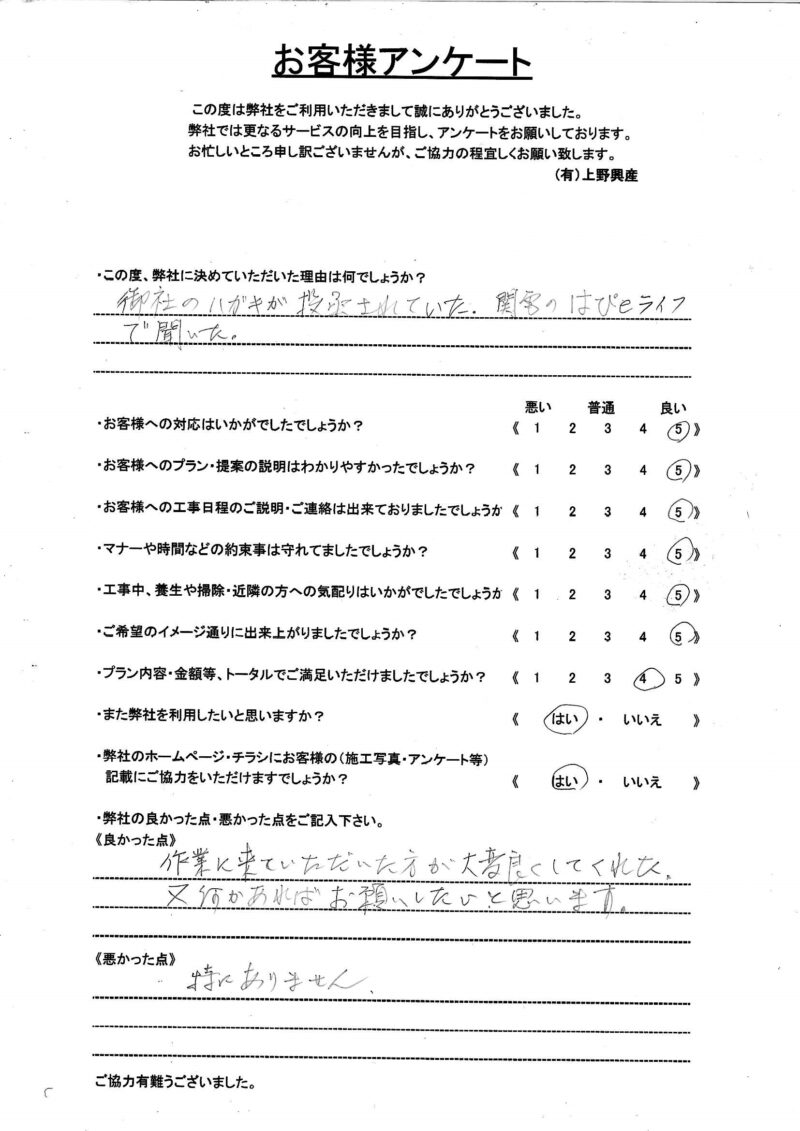 お客様アンケート
この度は弊社をご利用いただきまして誠にありがとうございました。
弊社では更なるサービスの向上を目指し、アンケートをお願いしております。
お忙しいところ申し訳ございませんが、ご協力の程宜しくお願い致します。
(有)上野興産
・この度、弊社に決めていただいた理由は何でしょうか?
御社のハガキが投函されていた. 関電のはぴeライフ
で聞いた。
悪い 普通 良い
・お客様への対応はいかがでしたでしょうか? 《 1 2 3 4 5 》
・お客様へのプラン・提案の説明はわかりやすかったでしょうか? 《 1 2 3 4 5 》
・お客様への工事日程のご説明・ご連絡は出来ておりましたでしょうか 《 1 2 3 4 5 》
・マナーや時間などの約束事は守れてましたでしょうか? 《 1 2 3 4 5 》
・工事中、養生や掃除・近隣の方への気配りはいかがでしたでしょうか 《 1 2 3 4 5 》
・ご希望のイメージ通りに出来上がりましたでしょうか? 《 1 2 3 4 5 》
・プラン内容・金額等、トータルでご満足いただけましたでしょうか? 《 1 2 3 4 5 》
・また弊社を利用したいと思いますか? 《 はい ・ いいえ 》
・弊社のホームページ・チラシにお客様の(施工写真・アンケート等)
記載にご協力をいただけますでしょうか? 《 はい ・ いいえ 》
・弊社の良かった点・悪かった点をご記入下さい。
《良かった点》
作業に来ていただいた方が大変良くしてくれた.
又何かあればお願いしたいと思います。
《悪かった点》
特にありません.
ご協力有難うございました。